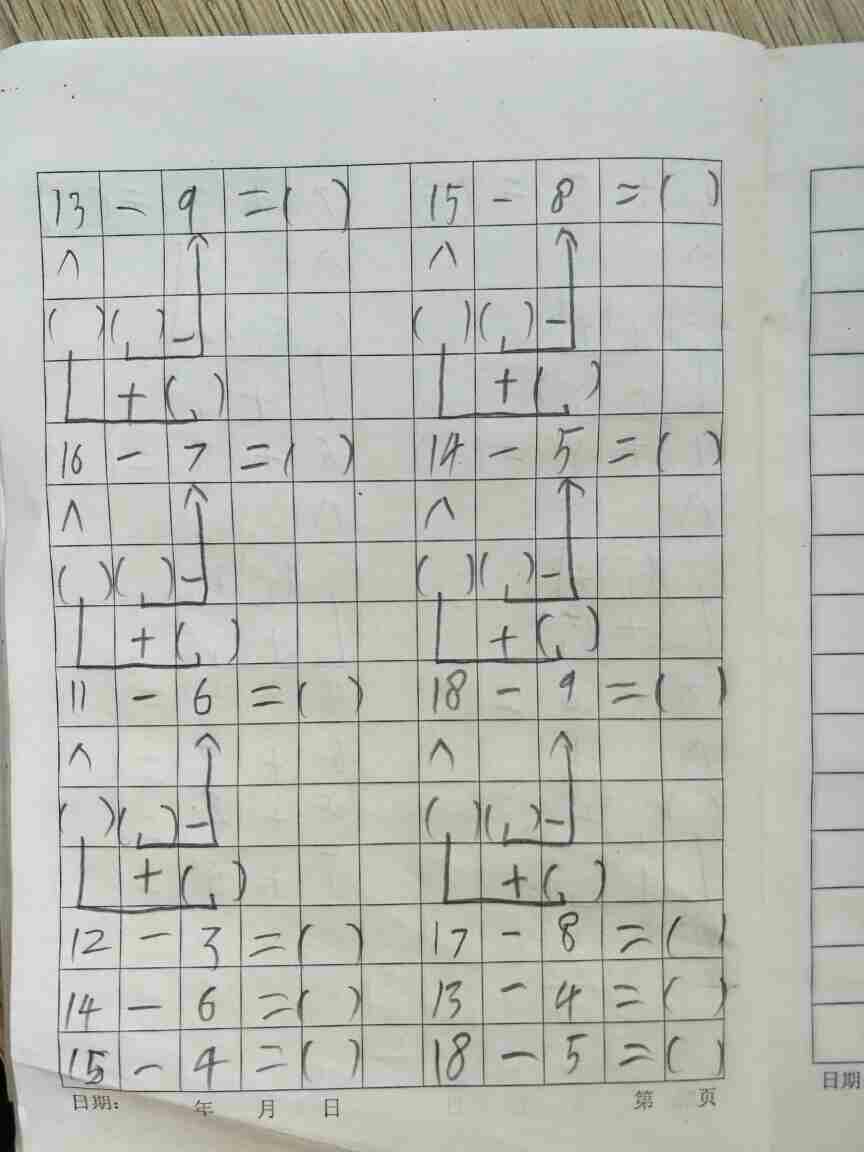 13 - 9 = ( ) 15 - 8 = ( )
∧ ∧
( ) ( ) - ( ) ( ) -
+ ( ) + ( )
16 - 7 = ( ) 14 - 5 = ( )
∧ ∧
( ) ( ) - ( ) ( ) -
+ ( ) + ( )
11 - 6 = ( ) 18 - 9 = ( )
∧ ∧
( ) ( ) - ( ) ( ) -
+ ( ) + ( )
12 - 3 = ( ) 17 - 8 = ( )
14 - 6 = ( ) 13 - 4 = ( )
15 - 4 = ( ) 18 - 5 = ( )
日期: 年 月 日 第 页
日期